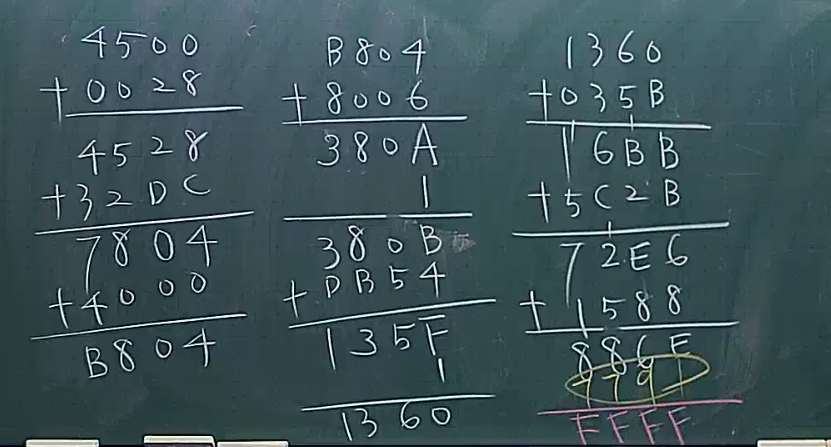 4500
+0028
4528
+32DC
7804
+4000
B804
B804
+8006
380A
1
380B
+DB54
135F
1
1360
1360
+035B
16BB
+5C2B
72E6
+1588
886E
7791
FFFF